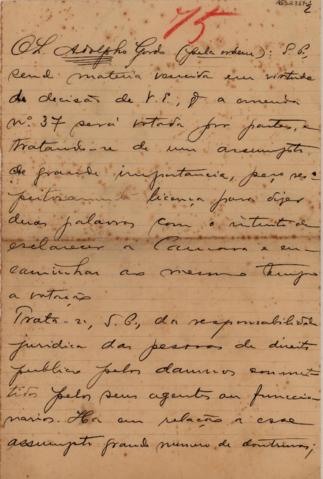 75
2
O Sr. Adolpho Gordo (pela ordem): S. P.,
sendo materia vencida em virtude
da decisão de V. E., q a emenda
nº 37 será votada por partes, e
tratando-se de um assumpto
de grande importancia, peço res-
peitosamente licença para dizer
duas palavras com o intento de
esclarecer a Camara e en-
caminhar ao mesmo tempo
a votação.
Trata-se, S. P., da responsabilidade
juridica das pessoas de direito
publico pelos damnos commet-
tidos pelos seus agentes ou funccio-
narios. Ha em relação a esse
assumpto grande numero de doutrinas;